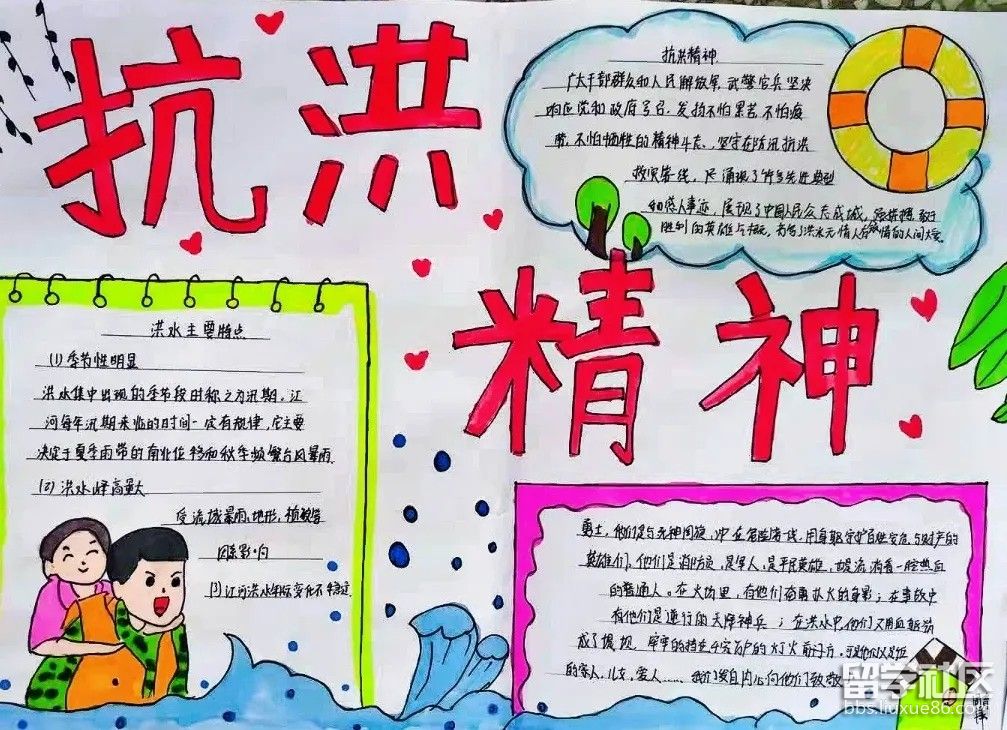 抗洪
精神
抗洪精神
广大干部群众和人民解放军，武警官兵坚决
响应党和政府号召，发扬不怕累苦不怕疲
劳，不怕牺牲的精神斗志，坚守在防汛抗洪
救灾第一线，涌现了许多先进典型
和感人事迹，展现了中国人民众志成城，
胜利的英雄气概，洪水无情人有情的人间大爱
洪水主要特点
(1)季节性明显
洪水集中出现的季节段时称之为汛期。江
河每年汛期来临的时间一定有规律，它主要
决定于夏季雨带的南北位移和秋季频繁台风暴雨
(2)洪水峰高量大
受流域暴雨，地形，植被等
因素影响
(3)江河洪水年际变化不稳定
勇士，他们是与死神周旋，冲在危险第一线，用身躯守护百姓安危与财产的
英雄们。他们是消防员，是军人，是平民英雄，
的普通人。在火场里，有他们奋勇扑火的身影；在事故中
有他们是逆行的天降神兵；在洪水中他们又用血躯筑
成了堤坝，牢牢的挡在
的家人，儿女，爱人……我们发自内心向他们致敬
留学社区
bbs.liuxue86.com